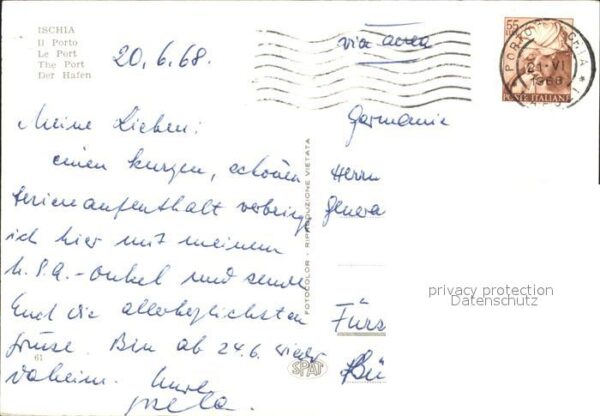 ISCHIA
Il Porto
Le Port
The Port
Der Hafen
20.6.68.
via aerea
55
PORTO D'ISCHIA
21-VI
1968
POSTE ITALIANE
Meine Lieben!
einen kurzen, schönen
Ferienaufenthalt verbringe
ich hier mit meinem
U.S.A.-Onkel und sende
Euch die allerherzlichsten
Grüsse. Bin ab 24.6. wieder
daheim. Eure
Germania
Herrn
Genera
Fürs
Bü
privacy protection
Datenschutz
FOTOCOLOR - RIPRODUZIONE VIETATA
SPAT
61